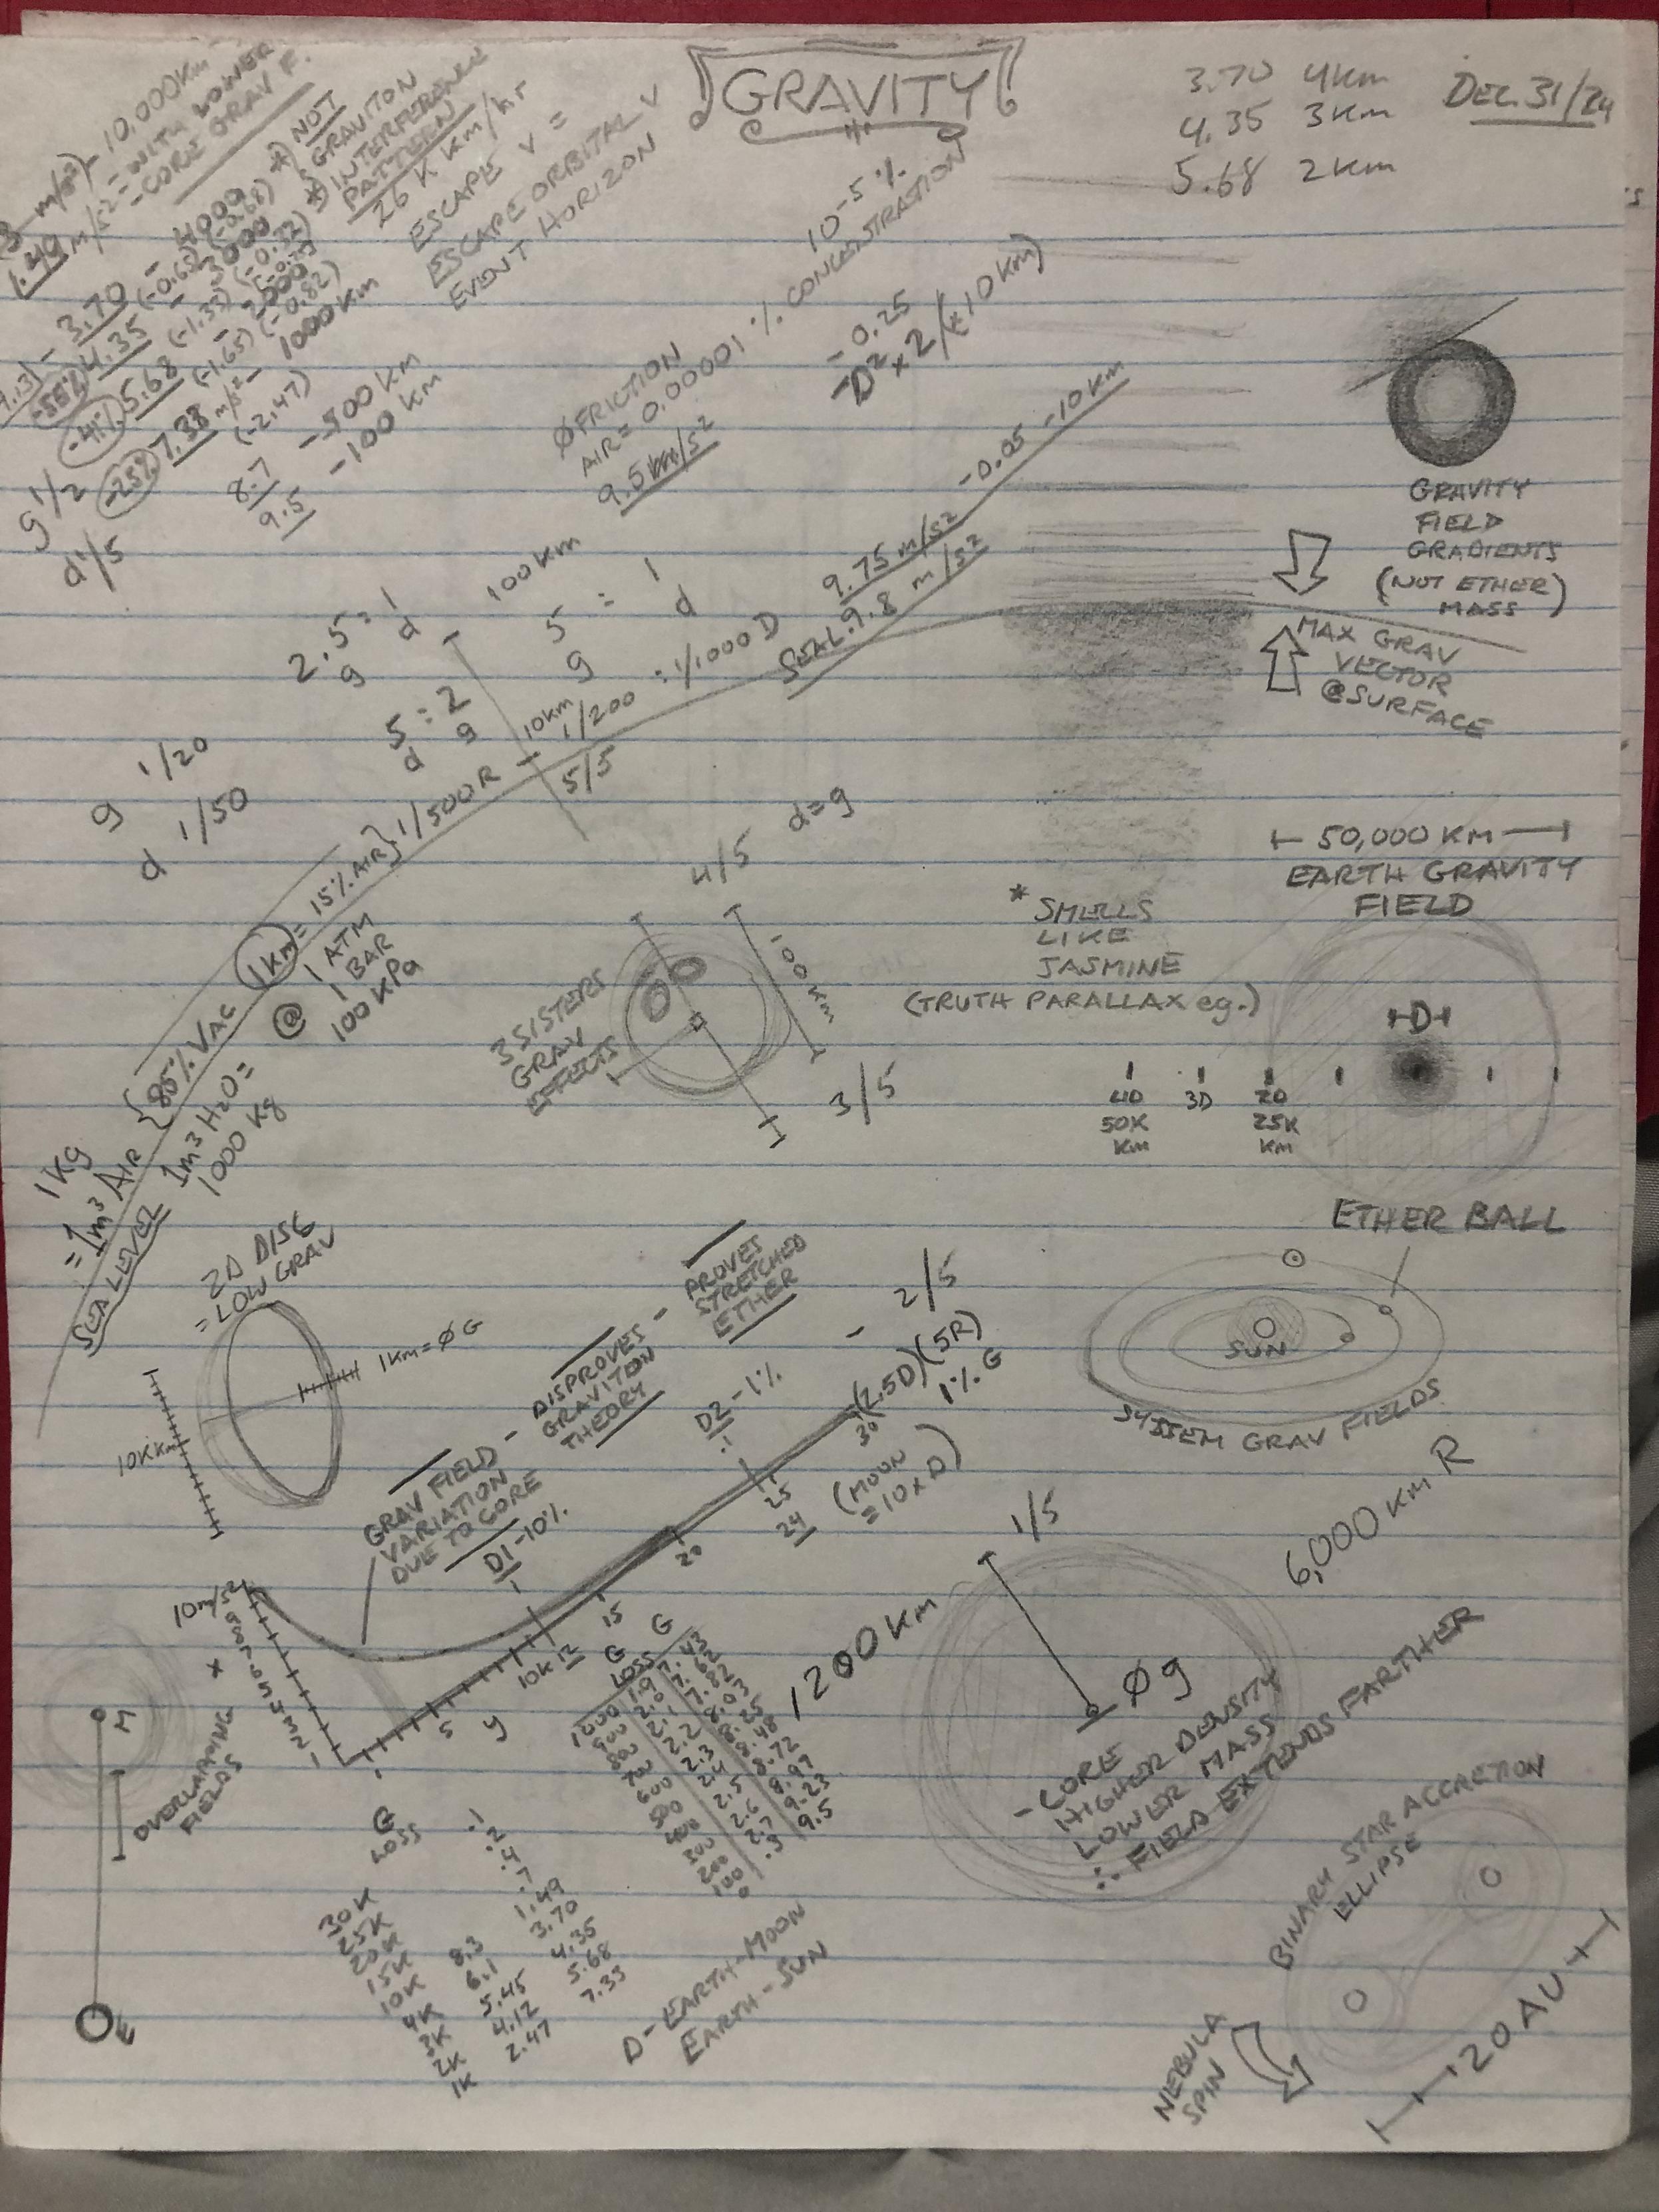 GRAVITY
DEC. 31/24
3.70 4KM
4.35 3KM
5.68 2KM
10,000KM
1.49 m/s² = WITH LOWER
- CORE GRAV F.
* NOT
* GRAVITON
INTERFERENCE
PATTERN
26 K KM/hr
ESCAPE V =
ESCAPE ORBITAL V
EVENT HORIZON
- 3.70 - 4000
-55% 4.35 (-0.65) - 3000
-41% 5.68 (-1.33) - 2000
-25% 7.38 m/s² - 1000KM
(-1.65) (-0.82)
(-2.47)
8.7 - 500 KM
9.5 - 100 KM
g 1/2
d 1/5
10⁻⁵%
ØFRICTION
AIR = 0.00001 % CONCENTRATION
9.5 m/s²
- 0.25
- D² x 2/(±10KM)
9.75 m/s² -0.05 -10KM
SEAL. 9.8 m/s²
GRAVITY
FIELD
GRADIENTS
(NOT ETHER)
MASS
MAX GRAV
VECTOR
@SURFACE
2.5 : 1
g d
100KM
5 : 1
g d
5 : 2
d g
10KM
1/200 : 1/1000 D
5/5
g 1/20
d 1/50
1KM = 15% AIR} 1/500R
{85% VAC
4/5
d=g
3 SISTERS
GRAV
EFFECTS
3/5
* SMELLS
LIKE
JASMINE
(TRUTH PARALLAX eg.)
50,000 KM
EARTH GRAVITY
FIELD
D
4D 3D 2D
50K 25K
KM KM
ETHER BALL
1Kg
= 1m³ AIR
SEA LEVEL
1m³ H2O =
1000 Kg
@ 1 ATM
1 BAR
100 KPa
2D DISC
= LOW GRAV
1KM = Ø G
10KKM
GRAV FIELD -
VARIATION
DUE TO CORE
DISPROVES -
GRAVITON
THEORY
PROVES
STRETCHED
ETHER
2/5
D1 -10%
1
D2 -1%
.1
(2.5D)(5R)
1% G
30
25
24
20
15
12
10K
5
(MOON
= 10 x D)
SUN
SYSSEM GRAV FIELDS
6,000 KM R
1/5
1200 KM
Øg
- CORE
HIGHER DENSITY
LOWER MASS
∴ FIELD EXTENDS FARTHER
10m/s²
9
8
7
6
5
4
3
2
1
x
y
M
OVERLAPPING
FIELDS
E
G
LOSS G
1000 1.9 7.43
900 2.0
800 2.1
700 2.2 8.25
600 2.3 8.48
500 2.4 8.72
400 2.5 8.97
300 2.6 9.23
200 2.7 9.5
100 .3
0
G
LOSS
30K .1
25K .2
20K .4
15K .7
10K 8.3 1.49
4K 6.1 3.70
3K 5.45 4.35
2K 4.12 5.68
1K 2.47 7.33
D - EARTH-MOON
EARTH - SUN
BINARY STAR ACCRETION
ELLIPSE
NEBULA
SPIN
20 AU